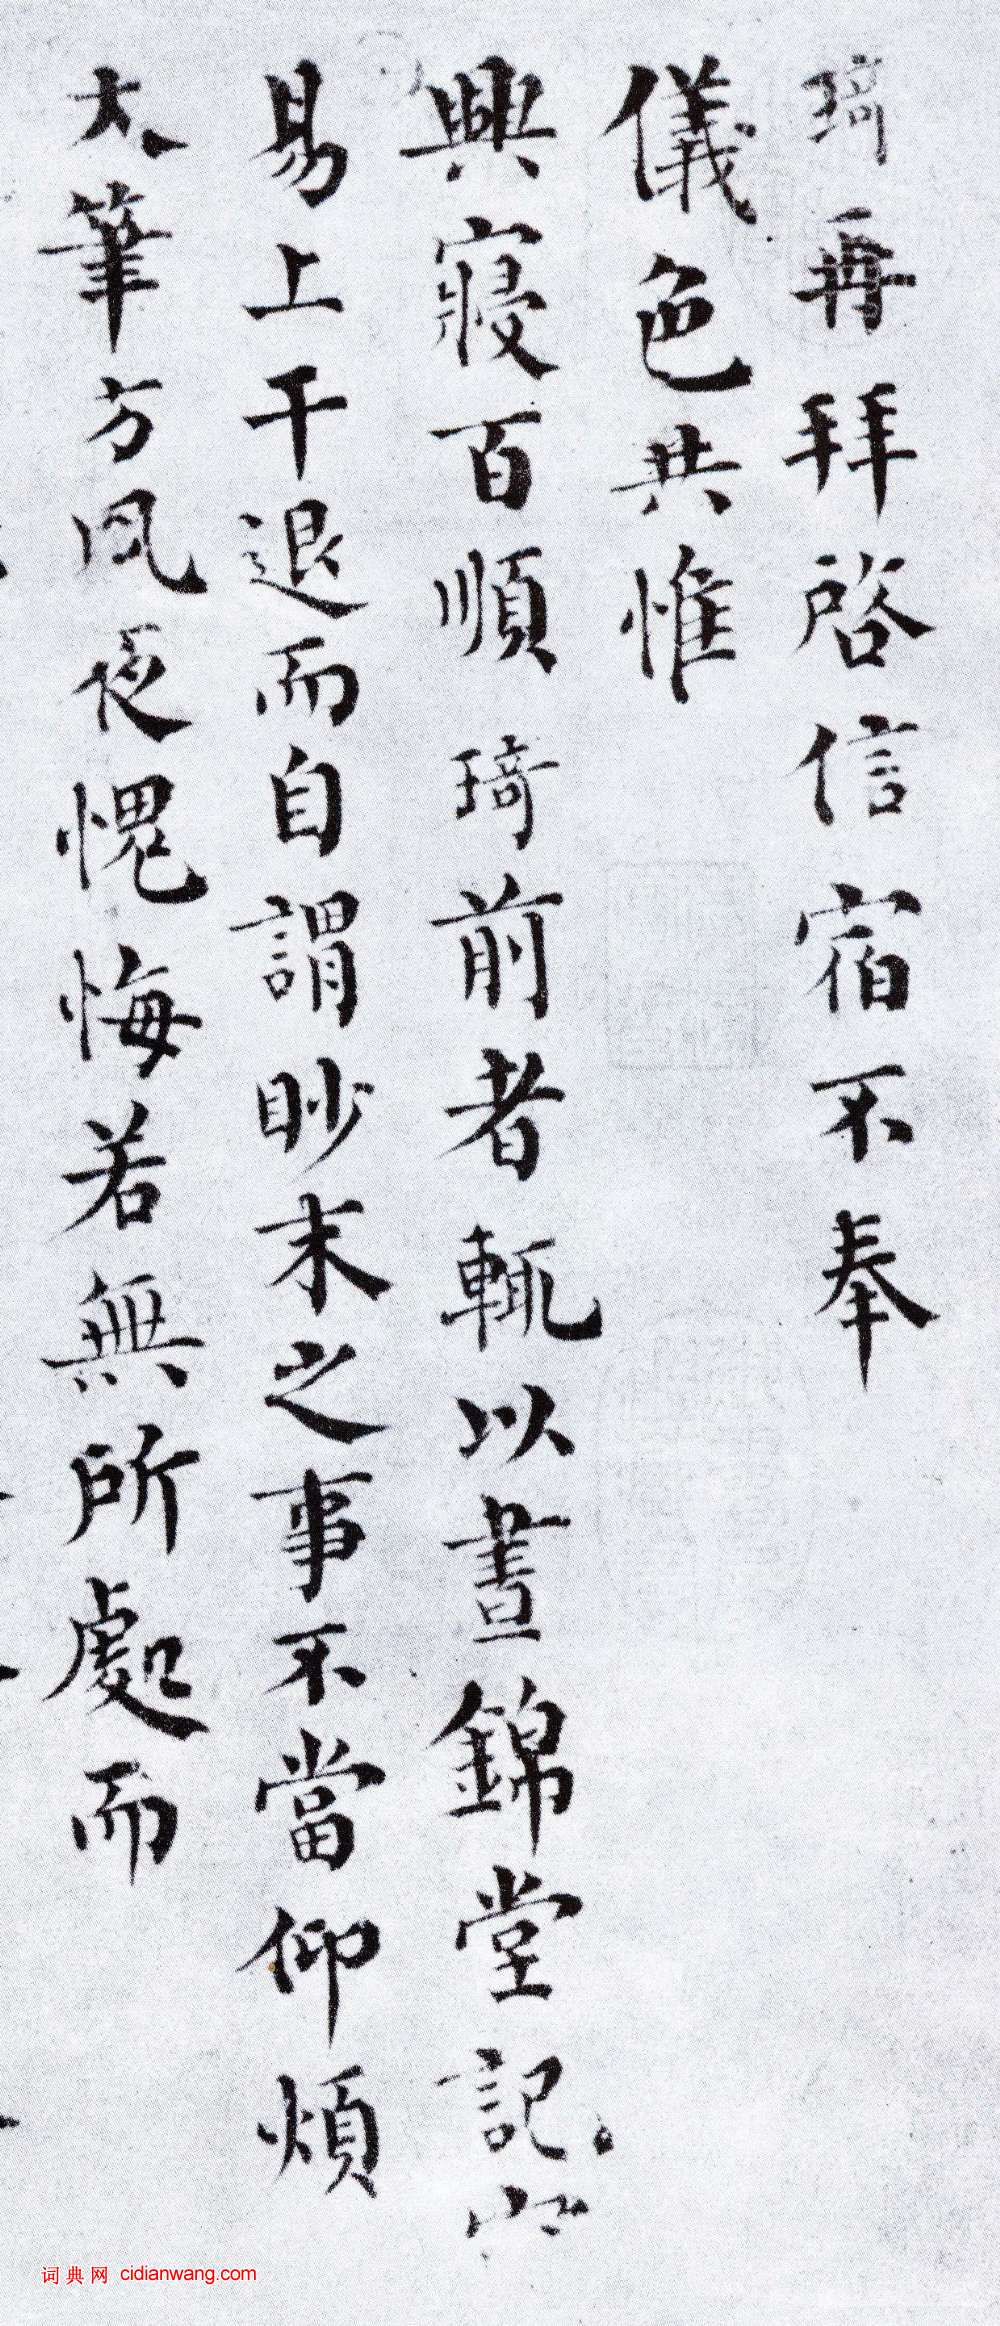 琦再拜啓信宿不奉
儀色共惟
興寢百順琦前者輒以晝錦堂記
易上干退而自謂眇末之事不當仰煩
大筆方夙夜愧悔若無所處而
词典网 cidianwang.com